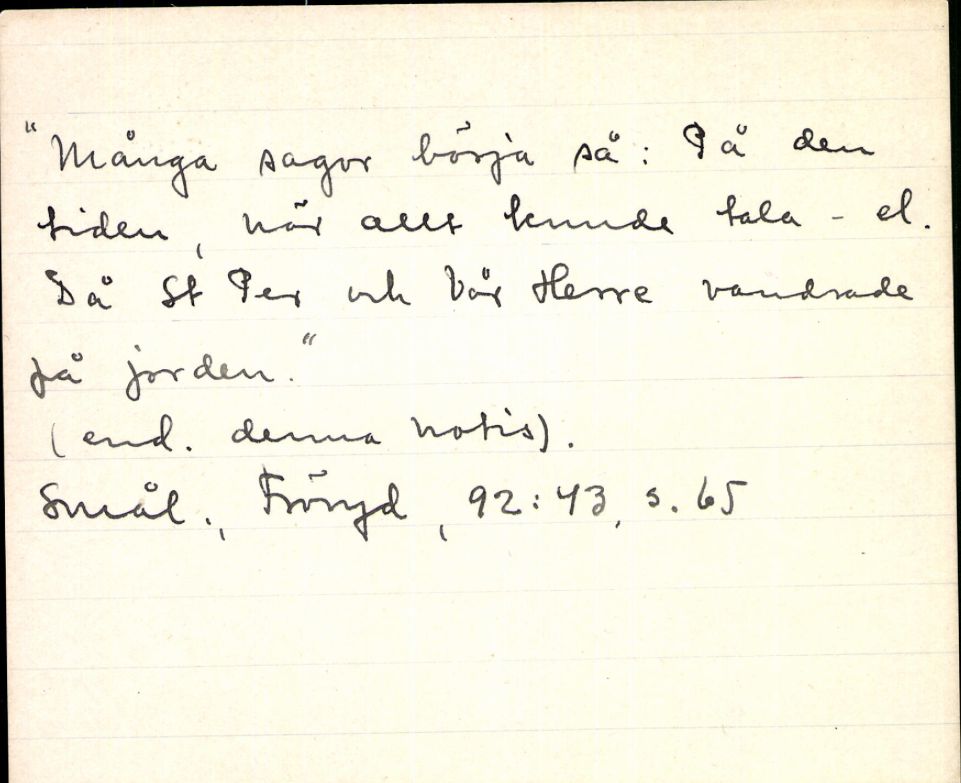 "Många sagor börja så: På den
tiden, när allt kunde tala - el.
Då St Per och Vår Herre vandrade
på jorden."
(end. denna notis).
Smål., Fröryd, 92:43, s. 65